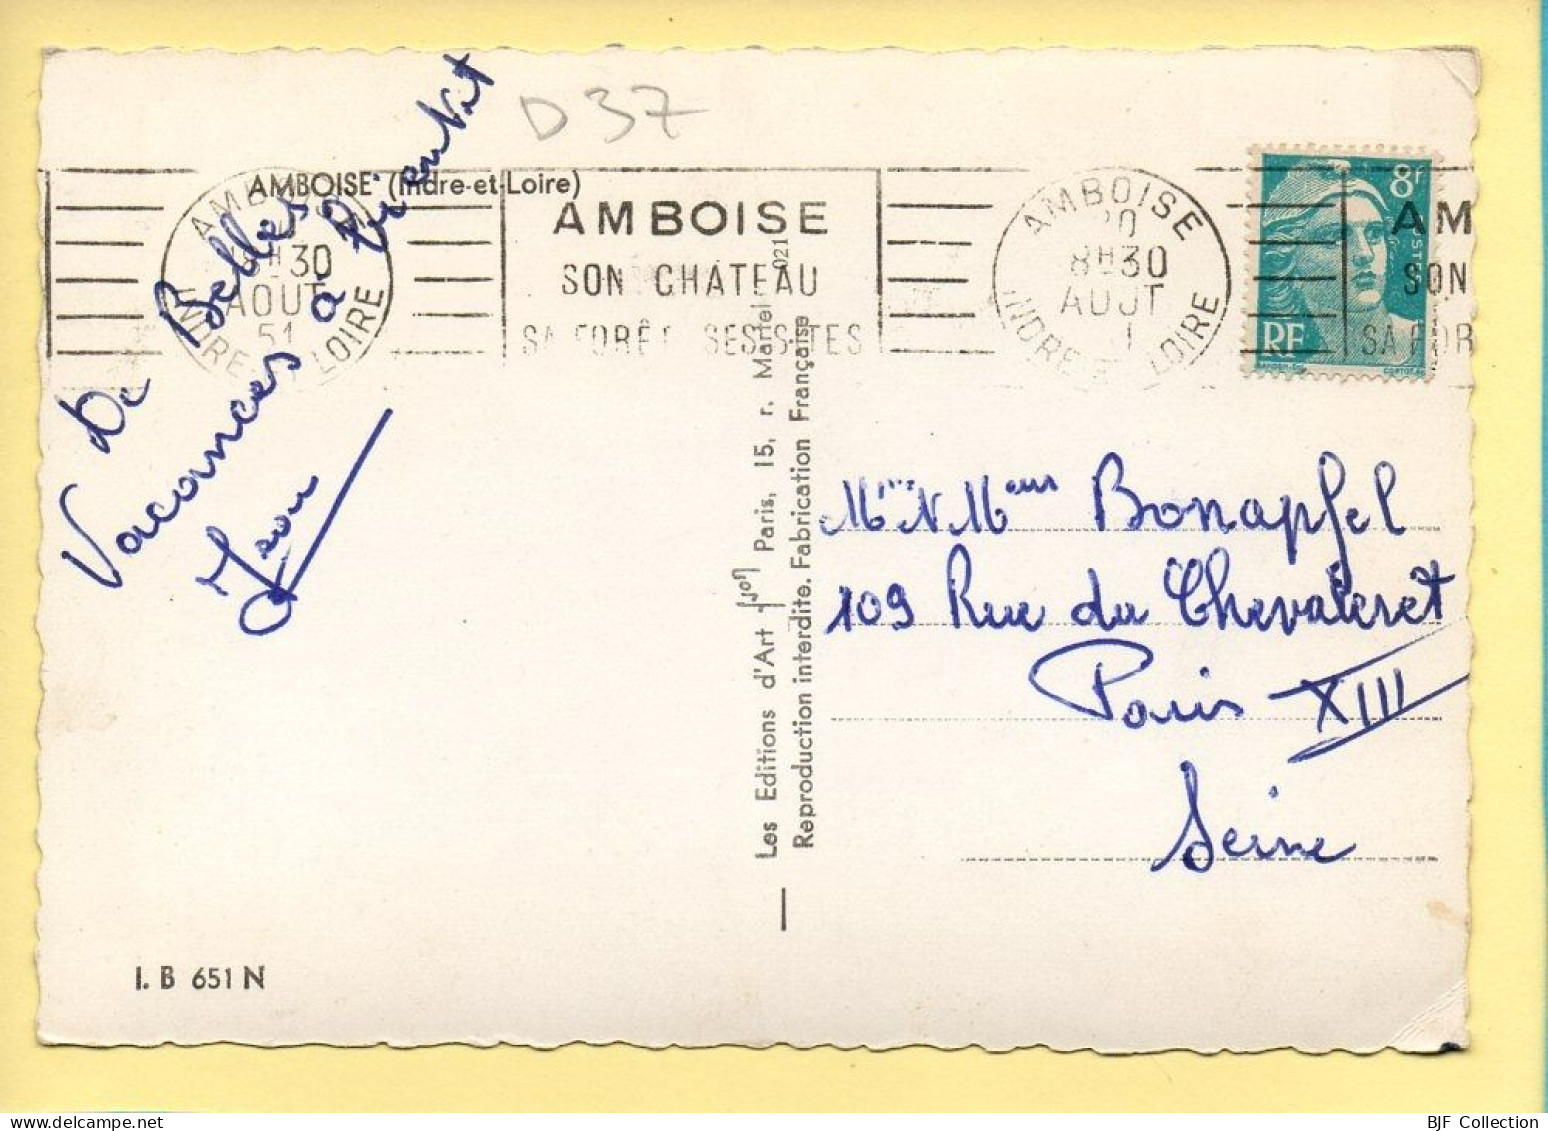 D 37
AMBOISE (Indre-et-Loire)
AMBOISE
8H30
AOUT
51
INDRE ET LOIRE
AMBOISE
SON CHÂTEAU
SA FORÊT SES SITES
AMBOISE
20
8H30
AOUT
INDRE ET LOIRE
8F
POSTES
RF
AM
SON
SA FOR
De Belles
Vacances à Bientôt
Jean
Mr et Mme Bonapfel
109 Rue du Chevaleret
Paris XIII
Seine
Les Editions d'Art Yvon Paris, 15, r. Martel 021
Reproduction interdite. Fabrication Française
I. B 651 N
BJF Collection